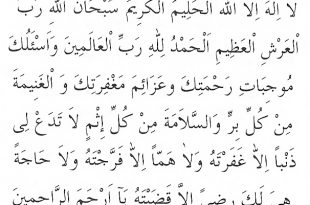 لَا اِلٰهَ اِلَّا اللّٰهُ الْحَلِيمُ الْكَرِيمُ سُبْحَانَ اللّٰهِ رَبِّ
الْعَرْشِ الْعَظِيمِ اَلْحَمْدُ لِلّٰهِ رَبِّ الْعَالَمِينَ وَاَسْئَلُكَ
مُوجِبَاتِ رَحْمَتِكَ وَعَزَائِمَ مَغْفِرَتِكَ وَ الْغَنِيمَةَ
مِنْ كُلِّ بِرٍّ وَالسَّلَامَةَ مِنْ كُلِّ إِثْمٍ لَا تَدَعْ لِى
ذَنْباً اِلَّا غَفَرْتَهُ وَلَا هَمًّا اِلَّا فَرَّجْتَهُ وَلَا حَاجَةً
هِىَ لَكَ رِضىً اِلَّا قَضَيْتَهُ يَآ اَرْحَمَ الرَّاحِمِينَ